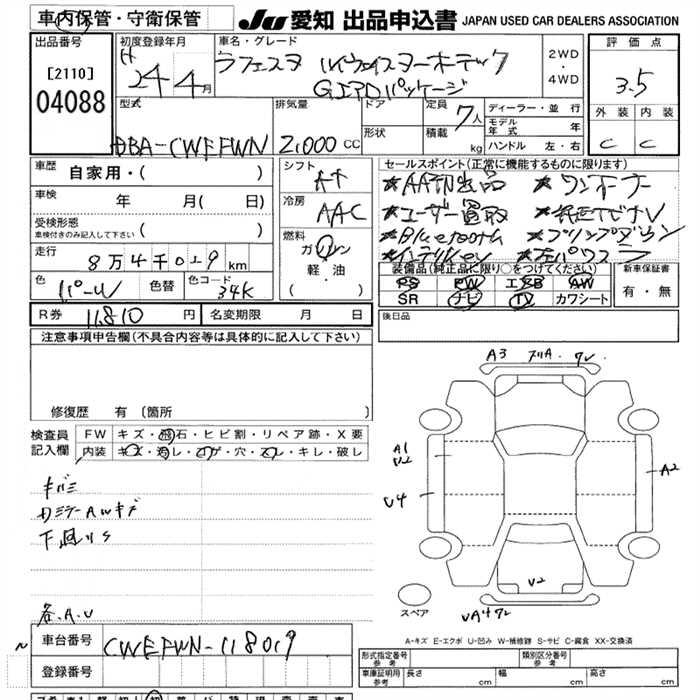 車内保管・守衛保管
JU 愛知 出品申込書 JAPAN USED CAR DEALERS ASSOCIATION
出品番号
[2110]
04088
初度登録年月
H 24年 4月
車名・グレード
ラフェスタ ハイウェイスターホーテック
G エアロパッケージ
2WD
・
4WD
評価点
3.5
外装 内装
C C
型式
DBA-CWEFWN
排気量
2,000 cc
ドア
形状
定員 7人
積載 kg
ディーラー・並 行
モデル年式 年
ハンドル 左・右
車歴 自家用・( )
車検 年 月( 日)
受検形態
車検付きのみ記入して下さい ( )
走行 8万4千0 9 km
色 パール 色替 色コード 34K
シフト
AT
冷房
AAC
燃料
ガソリン
軽・油
( ・ )
セールスポイント(正常に機能するものに限ります)
★AATN出品 ★ワンオーナー
★ユーザー買取 ★純正TVナビ
★Bluetooth ★プリップダウン
★インテリkey
装備品(純正品に限り○をつけてください)
PS PW エアB AW
SR ナビ TV カワシート
新車保証書
有・無
R券 11,810 円 名変期限 月 日
後日品
注意事項申告欄(不具合内容等は具体的に記入して下さい)
修復歴 有 〔箇所 〕
検査員記入欄
FW キズ・飛石・ヒビ割・リペア跡・X要
内装 キズ・汚レ・コゲ・穴・スレ・キレ・破レ
キバミ
カミラーAWキズ
下廻りS
各.A.U
A3 フリA. ワレ
A1
U2
U4
A2
U2
UA4ワレ
スペア
A-キズ E-エクボ U-凹み W-補修跡 S-サビ C-腐食 XX-交換済
車台番号 CWEFWN-118019
登録番号
形式指定番号 参考
類別区分番号 参考
車庫証明用 参考 長さ cm 幅 cm 高さ cm